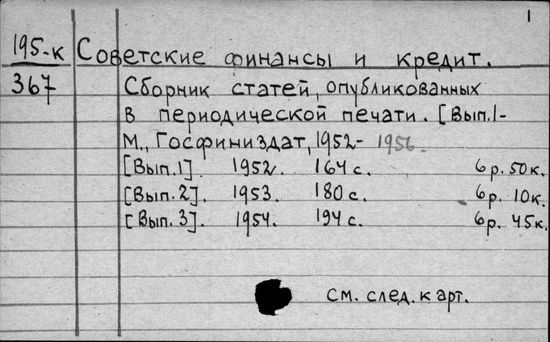 1
195-к Советские финансы и кредит.
367 Сборник статей, опубликованных
в периодической печати. [Вып.1-
М., Госфиниздат, 1952- 1956.
[Вып.1]. 1952. 164 с. 6 р. 50 к.
[Вып.2]. 1953. 180 с. 6 р. 10 к.
[Вып.3]. 1954. 194 с. 6 р. 45 к.
см. след. карт.